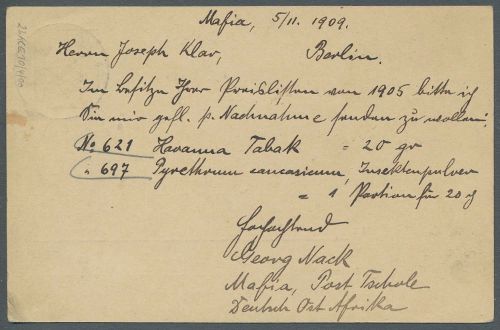 Mafia, 5/11. 1909.
Herrn Joseph Klar, Berlin.
Im Besitze Ihrer Preislisten von 1905 bitte ich
Sie mir gefl. p. Nachnahme senden zu wollen:
No 621 Havanna Tabak = 20 gr
" 697 Pyrethrum caucasicum, Insektenpulver
= 1 Portion für 20 ₰
Hochachtend
Georg Nack
Mafia, Post Tschole
Deutsch Ost Afrika